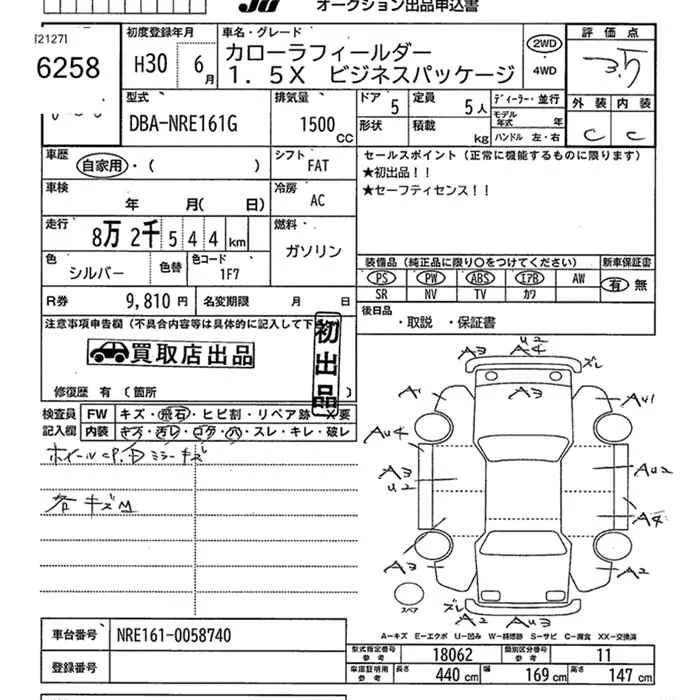 オークション出品申込書
[2127]
6258
初度登録年月
H30 6月
車名・グレード
カローラフィールダー
1.5X ビジネスパッケージ
2WD
・
4WD
評価点
3.5
型式
DBA-NRE161G
排気量
1500 CC
ドア 5
定員 5人
形状
積載 kg
ディーラー・並行
モデル年式 年
ハンドル 左・右
外装 内装
C C
車歴
自家用・( )
シフト
FAT
セールスポイント(正常に機能するものに限ります)
★初出品!!
★セーフティセンス!!
車検
年 月( 日)
冷房
AC
走行
8万 2千 5 4 4 km
燃料
ガソリン
色
シルバー
色替
色コード
1F7
装備品(純正品に限り○をつけてください) 新車保証書
PS PW ABS エアB AW 有・無
SR NV TV カワ
R券 9,810円
名変期限 月 日
後日品
・取説 ・保証書
注意事項申告欄(不具合内容等は具体的に記入して下
買取店出品
初出品
修復歴 有 (箇所 )
検査員
記入欄
FW キズ・飛石・ヒビ割・リペア跡・X要
内装 キズ・汚レ・コゲ・穴・スレ・キレ・破レ
ミラーキズ
各キズM
A3 U2 A4 ズレ
A3
A AU1
AU4
A3 U2
AU2
A4
A3 A2
スペア
ズレ A2 AU3
A-キズ E-エクボ U-凹み W-補修跡 S-サビ C-腐食 XX-交換済
車台番号 NRE161-0058740
登録番号
型式指定番号 参考 18062
類別区分番号 参考 11
車庫証明用 参考
長さ 440 cm
幅 169 cm
高さ 147 cm